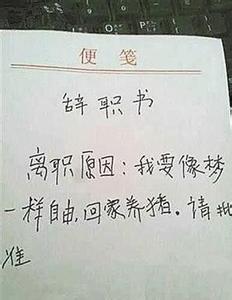 便笺
辞职书
离职原因：我要像梦
一样自由,回家养猪。请批
准